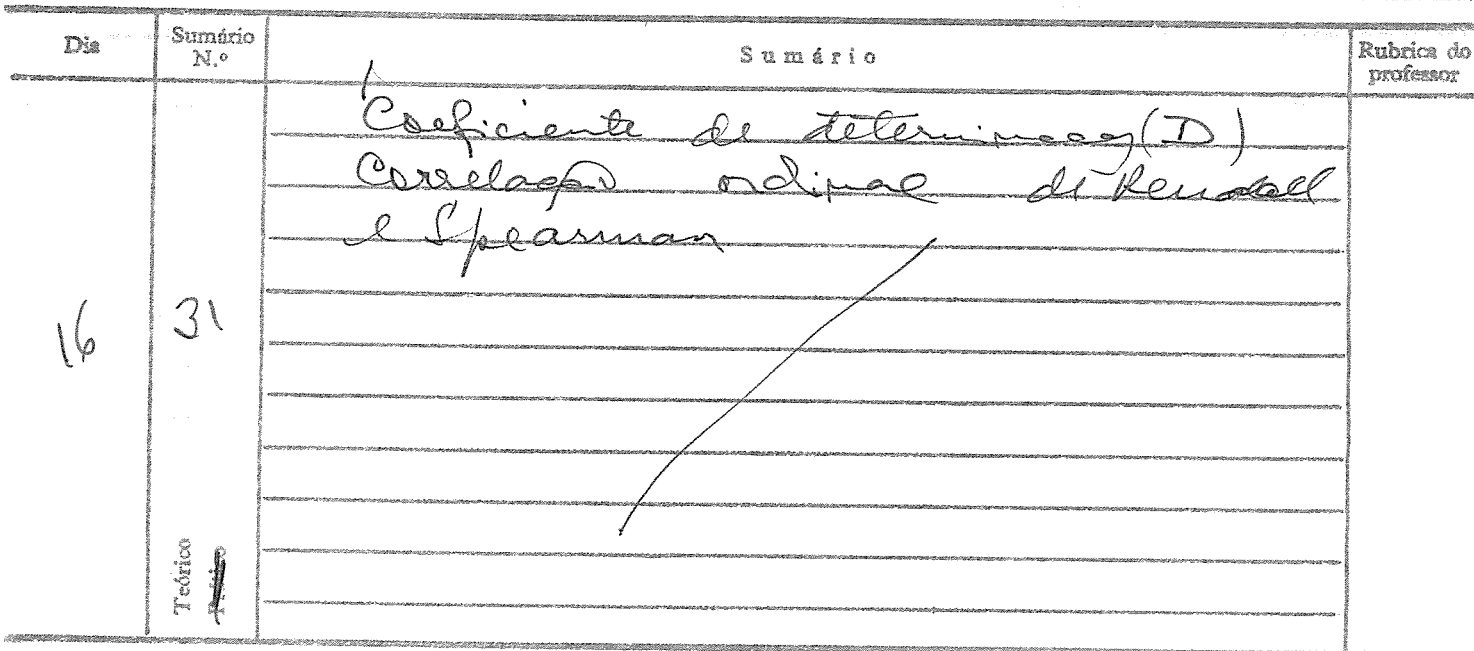 Dia
Sumário N.º
Sumário
Rubrica do professor
Coeficiente de determinação (D)
Correlação ordinal de Kendall
e Spearman
16
31
Teórico